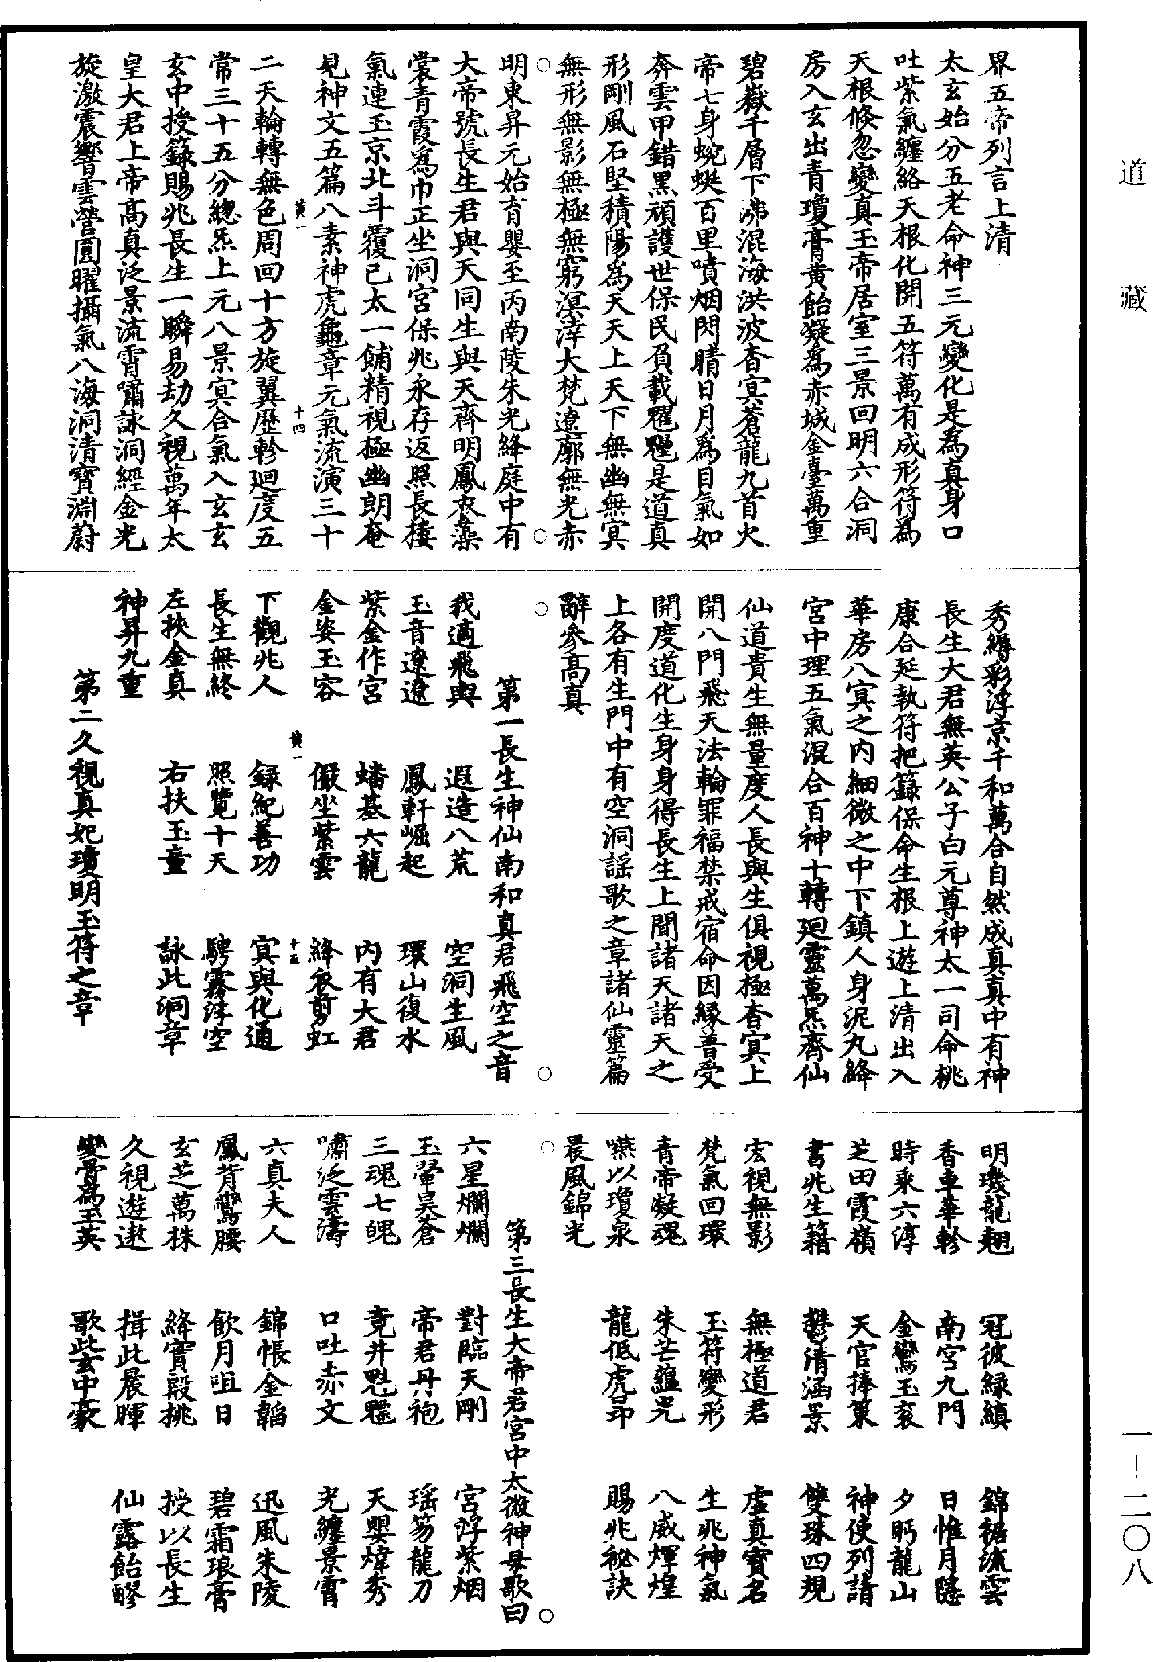 道藏
一—二〇八
界五帝列言上清
太玄始分五老命神三元變化是為真身口
吐紫氣纏絡天根化開五符萬有成形符為
天根倏忽變真玉帝居室三景回明六合洞
房入玄出青瓊膏黃飴凝為赤城金臺萬重
碧嶽千層下沸混海洪波杳冥蒼龍九首火
帝七身蜿蜒百里噴烟閃睛日月為目氣如
奔雲甲錯黑頑護世保民負載是道真
形剛風石堅積陽為天天上天下無幽無冥
無形無影無極無窮溟涬大梵遼廓無光赤
明東昇元始育嬰至丙南陵朱光絳庭中有
大帝號長生君與天同生與天齊明鳳衣藻
裳青霞為巾正坐洞宮保兆永存返照長接
氣連玉京北斗覆已太一鋪精視極幽朗奄
見神文五篇八素神虎龜章元氣流演三十
黃一 十四
二天輪轉無色周回十方旋翼歷軫迴度五
常三十五分總炁上元八景冥合氣入玄玄
玄中授籙賜兆長生一瞬易劫久視萬年太
皇大君上帝高真泛景流霄嘯詠洞經金光
旋激震響雲營圓曜攝氣八海洞清寶淵蔚
秀縟彩浮京千和萬合自然成真真中有神
長生大君無英公子白元尊神太一司命桃
康合延執符把籙保命生根上遊上清出入
華房八冥之內細微之中下鎮人身泥丸絳
宮中理五氣混合百神十轉迴靈萬炁齊仙
仙道貴生無量度人長與生俱視極杳冥上
開八門飛天法輪罪福禁戒宿命因緣普受
開度道化生身身得長生上聞諸天諸天之
上各有生門中有空洞謠歌之章諸仙靈篇
辭參高真
第一長生神仙南和真君飛空之音
我適飛輿 遐造八荒 空洞生風
玉音遼遼 鳳軒崛起 環山復水
紫金作宮 蟠基六龍 內有大君
金姿玉容 儼坐紫雲 絳衣剪虹
黃一 十五
下觀兆人 錄紀善功 冥與化通
長生無終 照覽十天 騁霧浮空
左挾金真 右扶玉童 詠此洞章
神昇九重
第二久視真妃瓊明玉符之章
明璈龍翹 冠彼綠縝 錦裾流雲
香車華軫 南宮九門 日惟月隱
時乘六淳 金鸞玉衮 夕眄龍山
芝田霞嶺 天官捧篆 神使列請
書兆生籍 鬱清涵景 雙珠四規
宏視無影 無極道君 虛真寶名
梵氣回環 玉符變形 生兆神氣
青帝凝魂 朱芒蘊光 八威輝煌
嚥以瓊泉 龍低虎昂 賜兆祕訣
晨風錦光
第三長生大帝君宮中太微神母歌曰
六星爛爛 對臨天剛 宮浮紫烟
玉翬昊蒼 帝君丹袍 瑤笏龍刀
三魂七魄 竟并魁 天嬰煒秀
嘯泛雲濤 口吐赤文 光纏景霄
六真夫人 錦帳金韜 迅風朱陵
鳳背鸞腰 飲月咀日 碧霜琅膏
玄芝萬株 絳實殷桃 授以長生
久視遊遨 揖此晨暉 仙露飴醪
變骨為玉英 歌此玄中豪